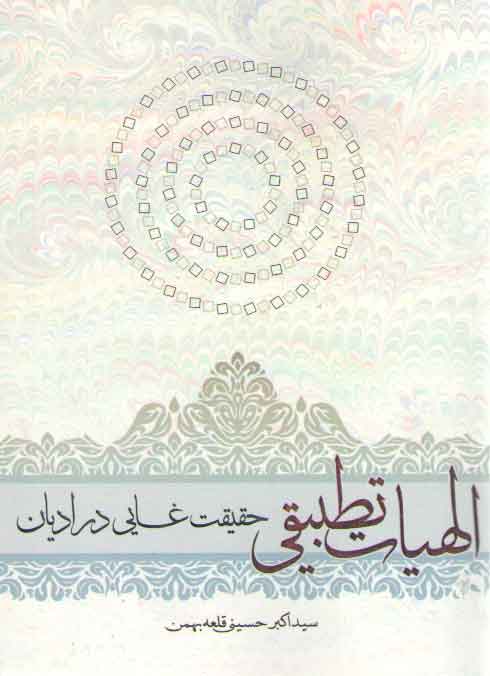 الهیات تطبیقی
حقیقت غایی در ادیان
سید اکبر حسینی قلعه بهمن